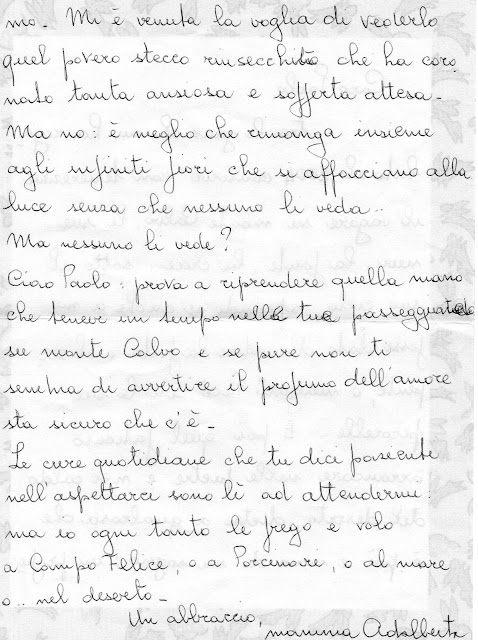 mo.. Mi è venuta la voglia di vederlo
quel povero stecco rinsecchito che ha coro
nato tanta ansiosa e sofferta attesa_
Ma no: è meglio che rimanga insieme
agli infiniti fiori che si affacciano alla
luce senza che nessuno li veda..
Ma nessuno li vede?
Ciao Paolo: prova a riprendere quella mano
che tenevi un tempo nelle tue passeggiate
su monte Calvo e se pure non ti
sembra di avvertire il profumo dell'amore
sta sicuro che c'è_
Le cure quotidiane che tu dici
nell'aspettarci sono lì ad attendermi:
ma io ogni tanto le frego e volo
a Campo Felice, o a Porcenare, o al mare
o.. nel deserto_
Un abbraccio,
mamma Adalberta